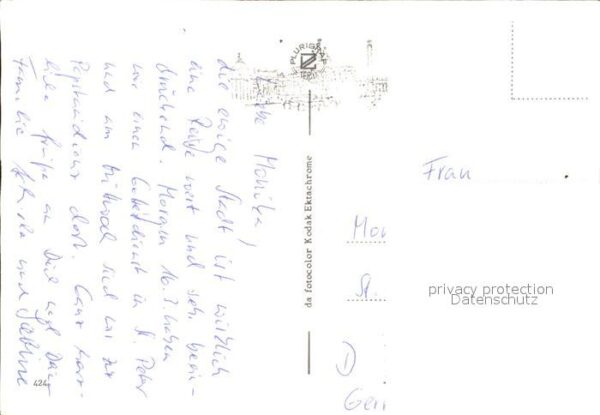 Liebe Monika,
die ewige Stadt ist wirklich
eine Reise wert und sehr beein-
druckend. Morgen 16.3. haben
wir einen Gebetdienst in St. Peter
und am Mittwoch sind wir zur
Papstaudienz dort. Ganz herz-
liche Grüße an Dich und Deine
Familie und Sabine
PLURIGRAF
da fotocolor Kodak Ektachrome
424
Frau
Mon
St.
D
Ger
privacy protection
Datenschutz